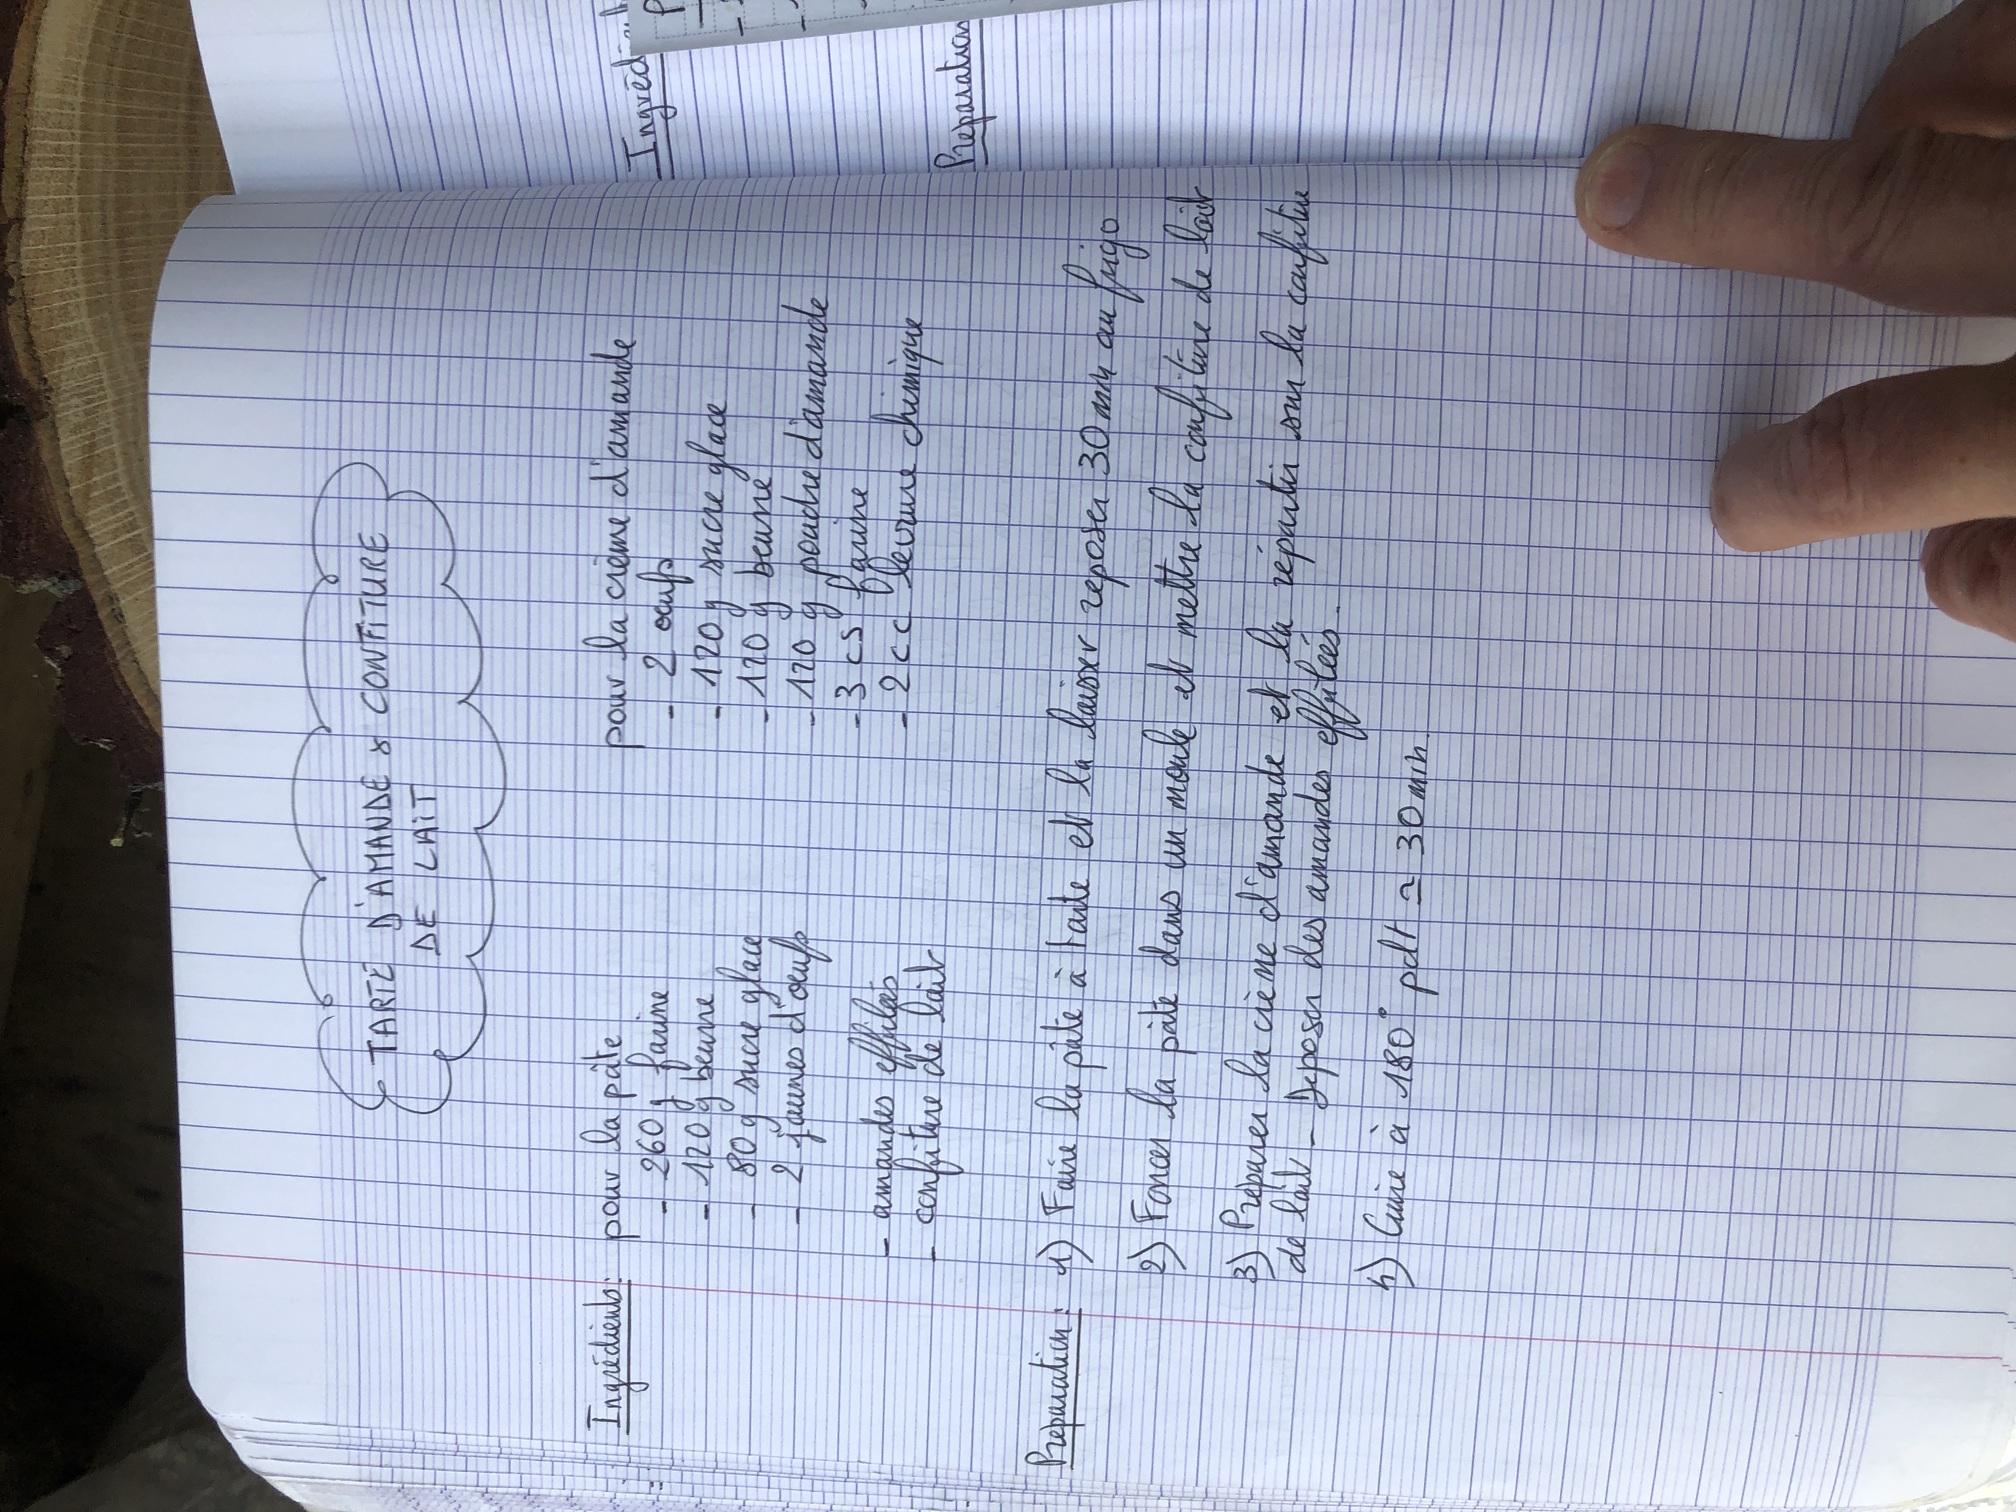 TARTE D'AMANDE & CONFITURE
DE LAIT
Ingrédients: pour la pâte
- 260 g farine
- 120 g beurre
- 80 g sucre glace
- 2 jaunes d'oeufs
- amandes effilées
- confiture de lait
pour la crème d'amande
- 2 oeufs
- 120 g sucre glace
- 120 g beurre
- 120 g poudre d'amande
- 3 cs farine
- 2 cc levure chimique
Préparation: 1) Faire la pâte à tarte et la laisser reposer 30 min au frigo
2) Foncer la pâte dans un moule et mettre la confiture de lait
3) Préparer la crème d'amande et la répartir sur la confiture
de lait - Déposer des amandes effilées.
4) Cuire à 180° pdt ≃ 30 min.
Ingréd
Préparation